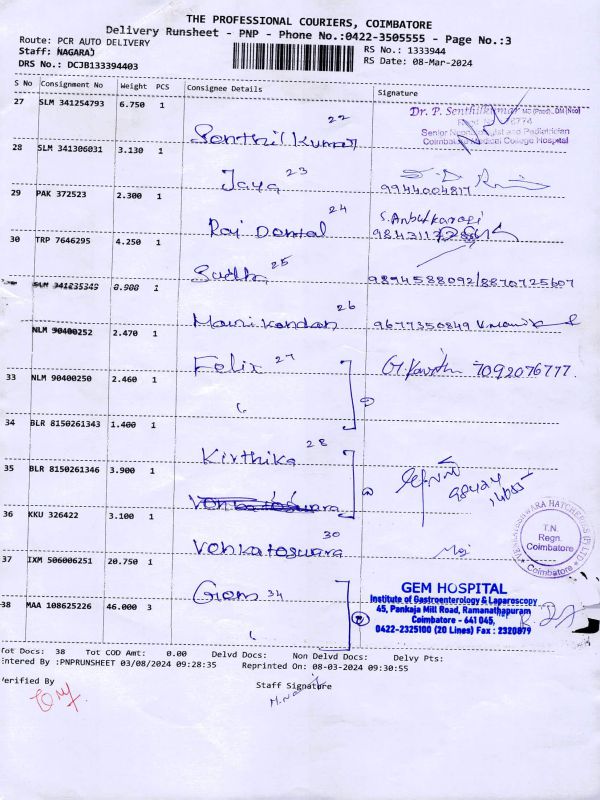 THE PROFESSIONAL COURIERS, COIMBATORE
Delivery Runsheet - PNP - Phone No.:0422-3505555 - Page No.:3
Route: PCR AUTO DELIVERY
Staff: NAGARAJ
RS No.: 1333944
DRS No.: DCJB133394403
RS Date: 08-Mar-2024
S No Consignment No Weight PCS Consignee Details Signature
27 SLM 341254793 6.750 1
22
Senthil Kumar
Dr. P. Senthilkumar
Senior Neonatologist and Pediatrician
Coimbatore Medical College Hospital
28 SLM 341306031 3.130 1
Jaya 23
9944004817
29 PAK 372523 2.300 1
24
Raj Dental
30 TRP 7646295 4.250 1
Sudha 25
9894588092/8870725607
SLM 341235349 0.900 1
26
Manikandan
9677350849
NLM 90400252 2.470 1
Felix 27
7092076777
33 NLM 90400250 2.460 1
34 BLR 8150261343 1.400 1
28
Kirthika
35 BLR 8150261346 3.900 1
36 KKU 326422 3.100 1
30
Venkateswara
VENKATESHWARA HATCHERIES (P) LTD
T.N.
Regn.
Coimbatore
Coimbatore
37 IXM 506006251 20.750 1
Gem 34
GEM HOSPITAL
Institute of Gastroenterology & Laparoscopy
45, Pankaja Mill Road, Ramanathapuram
Coimbatore - 641 045,
0422-2325100 (20 Lines) Fax : 2320879
38 MAA 108625226 46.000 3
Tot Docs: 38 Tot COD Amt: 0.00 Delvd Docs: Non Delvd Docs: Delvy Pts:
Entered By :PNPRUNSHEET 03/08/2024 09:28:35 Reprinted On: 08-03-2024 09:30:55
Verified By
Staff Signature